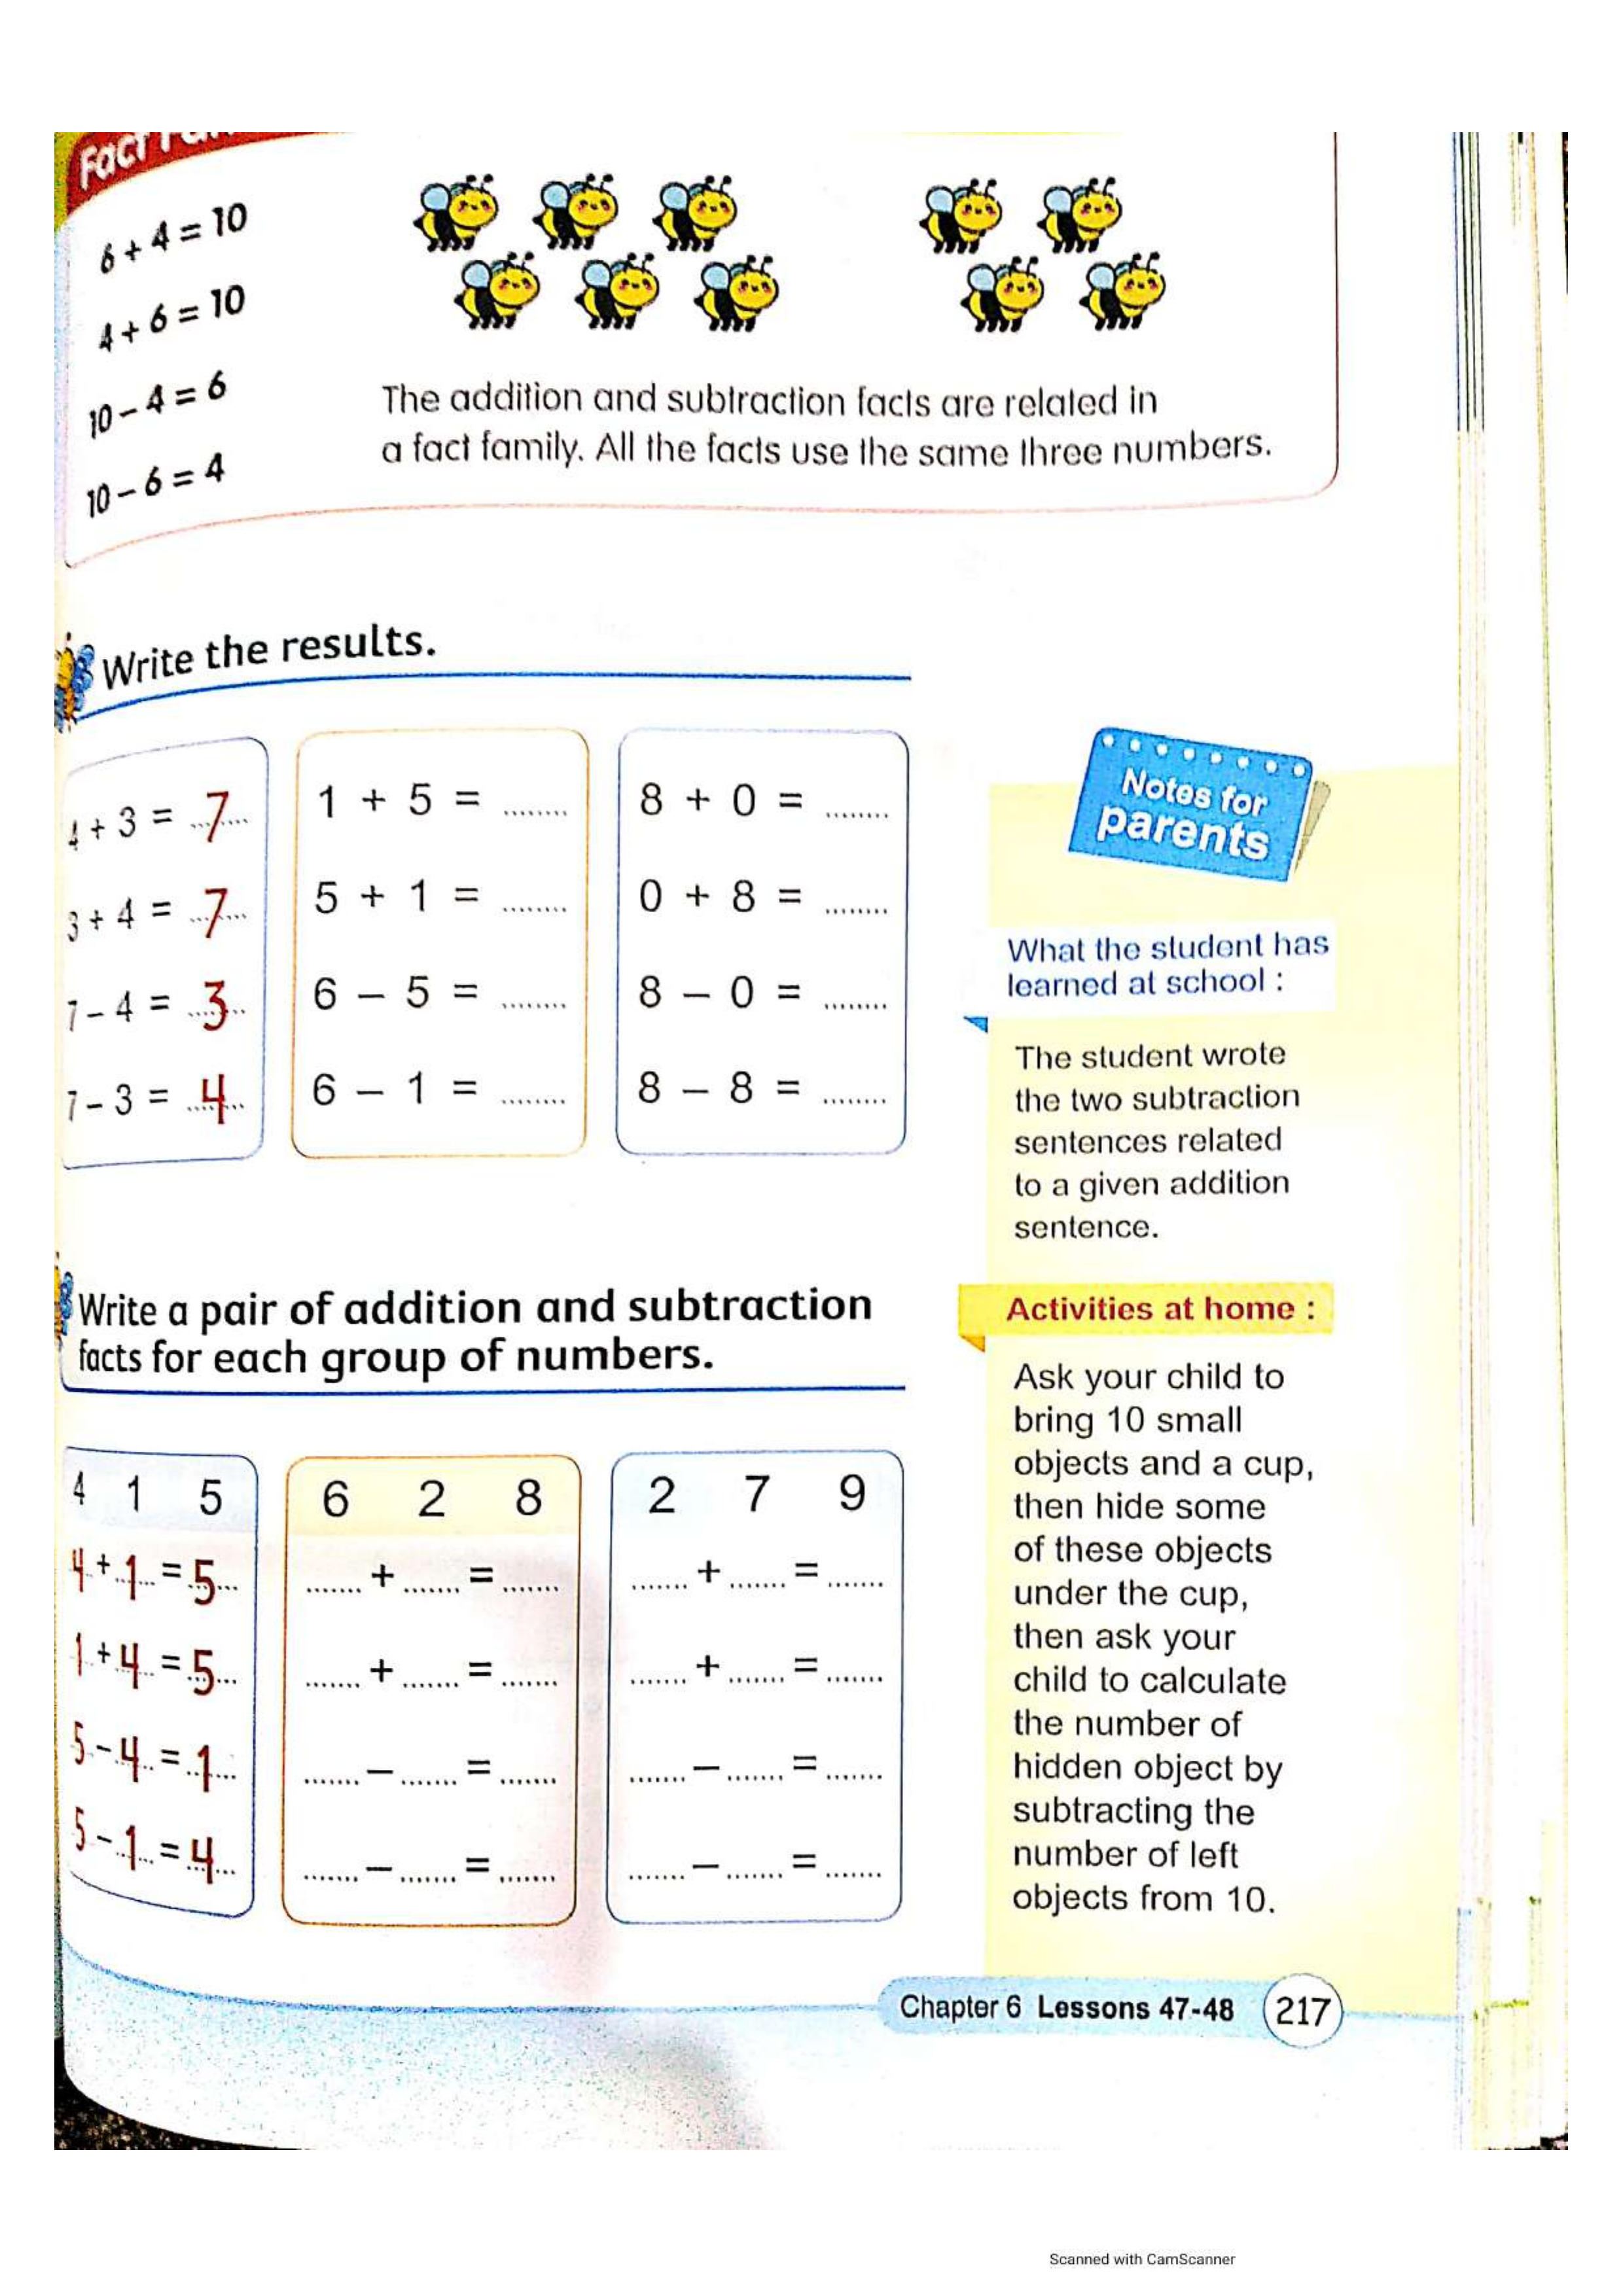 Fact
6 + 4 = 10
4 + 6 = 10
10 – 4 = 6
10 – 6 = 4
The addition and subtraction facts are related in
a fact family. All the facts use the same three numbers.
Write the results.
4 + 3 = 7
3 + 4 = 7
7 – 4 = 3
7 – 3 = 4
1 + 5 = ........
5 + 1 = ........
6 – 5 = ........
6 – 1 = ........
8 + 0 = ........
0 + 8 = ........
8 – 0 = ........
8 – 8 = ........
Write a pair of addition and subtraction
facts for each group of numbers.
4 1 5
4 + 1 = 5
1 + 4 = 5
5 – 4 = 1
5 – 1 = 4
6 2 8
....... + ....... = .......
....... + ....... = .......
....... – ....... = .......
....... – ....... = .......
2 7 9
....... + ....... = .......
....... + ....... = .......
....... – ....... = .......
....... – ....... = .......
Notes for
parents
What the student has
learned at school :
The student wrote
the two subtraction
sentences related
to a given addition
sentence.
Activities at home :
Ask your child to
bring 10 small
objects and a cup,
then hide some
of these objects
under the cup,
then ask your
child to calculate
the number of
hidden object by
subtracting the
number of left
objects from 10.
Chapter 6 Lessons 47-48 217
Scanned with CamScanner